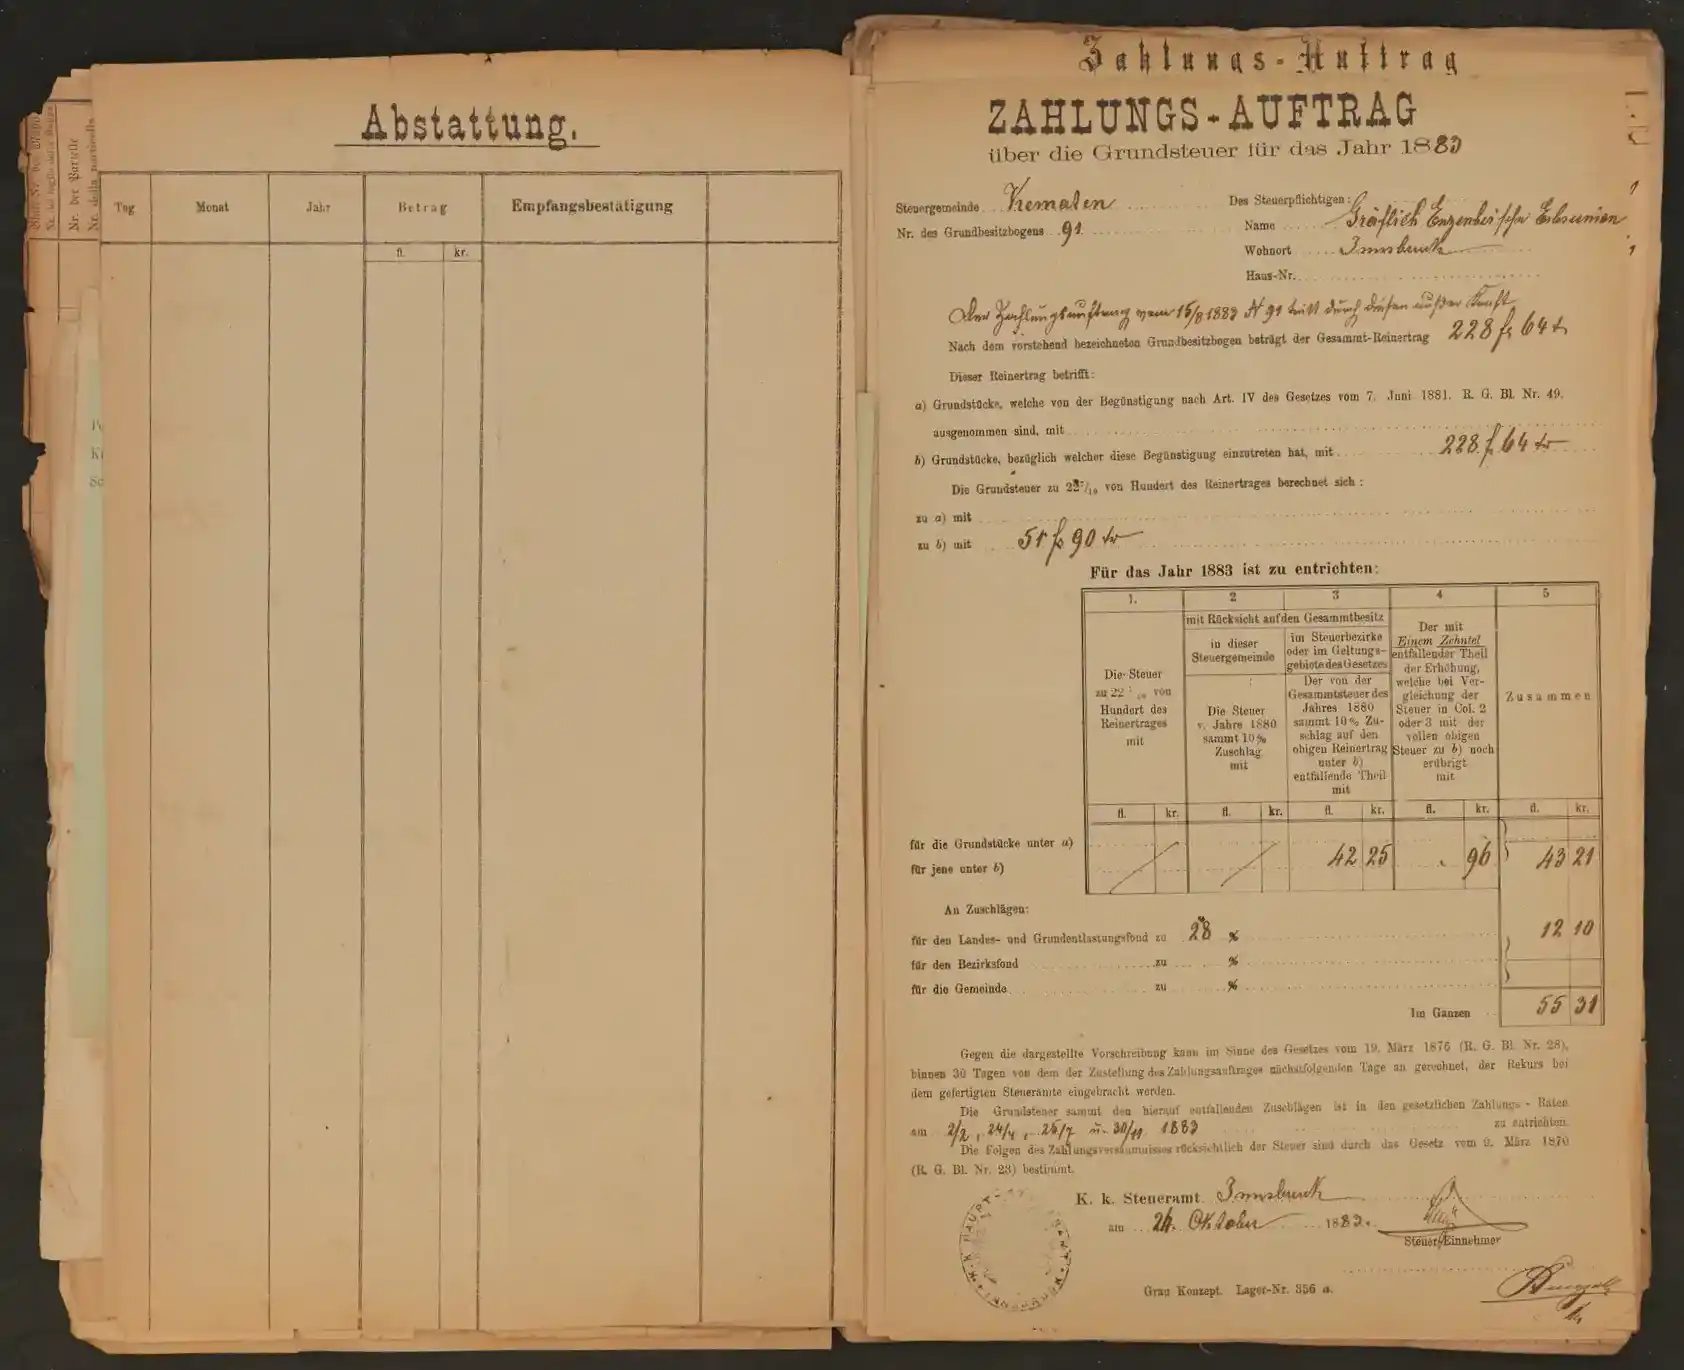 Abstattung.
Tag Monat Jahr Betrag Empfangsbestätigung
fl. kr.
Nr. der Parcelle
Zahlungs-Auftrag
ZAHLUNGS-AUFTRAG
über die Grundsteuer für das Jahr 1883
Steuergemeinde Kematen
Nr. des Grundbesitzbogens 91
Des Steuerpflichtigen:
Name Gräflich Enzenber'sche
Wohnort Innsbruck
Haus-Nr.
Der Zahlungsauftrag vom 15/8 1883 N 91 tritt durch diesen außer Kraft
Nach dem vorstehend bezeichneten Grundbesitzbogen beträgt der Gesammt-Reinertrag 228 f 64 kr
Dieser Reinertrag betrifft:
a) Grundstücke, welche von der Begünstigung nach Art. IV des Gesetzes vom 7. Juni 1881. R. G. Bl. Nr. 49.
ausgenommen sind, mit
b) Grundstücke, bezüglich welcher diese Begünstigung einzutreten hat, mit 228 f 64 kr
Die Grundsteuer zu 22 7/10 von Hundert des Reinertrages berechnet sich:
zu a) mit
zu b) mit 51 f 90 kr
Für das Jahr 1883 ist zu entrichten:
1. 2 3 4 5
Die Steuer
zu 22 7/10 von
Hundert des
Reinertrages
mit
mit Rücksicht auf den Gesammtbesitz
in dieser
Steuergemeinde
Die Steuer
v. Jahre 1880
sammt 10%
Zuschlag
mit
im Steuerbezirke
oder im Geltungs-
gebiete des Gesetzes
Der von der
Gesammtsteuer des
Jahres 1880
sammt 10% Zu-
schlag auf den
obigen Reinertrag
unter b)
entfallende Theil
mit
Der mit
Einem Zehntel
entfallender Theil
der Erhöhung,
welche bei Ver-
gleichung der
Steuer in Col. 2
oder 3 mit der
vollen obigen
Steuer zu b) noch
erübrigt
mit
Zusammen
fl. kr. fl. kr. fl. kr. fl. kr. fl. kr.
für die Grundstücke unter a)
für jene unter b) 42 25 96 43 21
An Zuschlägen:
für den Landes- und Grundentlastungsfond zu 28 % 12 10
für den Bezirksfond zu %
für die Gemeinde zu %
Im Ganzen 55 31
Gegen die dargestellte Vorschreibung kann im Sinne des Gesetzes vom 19. März 1876 (R. G. Bl. Nr. 28),
binnen 30 Tagen von dem der Zustellung des Zahlungsauftrages nächstfolgenden Tage an gerechnet, der Rekurs bei
dem gefertigten Steueramte eingebracht werden.
Die Grundsteuer sammt den hierauf entfallenden Zuschlägen ist in den gesetzlichen Zahlungs-Raten
am 2/2, 24/4, 26/7 u. 30/11 1883 zu entrichten.
Die Folgen des Zahlungsversäumnisses rücksichtlich der Steuer sind durch das Gesetz vom 9. März 1870
(R. G. Bl. Nr. 23) bestimmt.
K. k. Steueramt Innsbruck
am 24. Oktober 1883.
Steuer-Einnehmer
Grau Konzept. Lager-Nr. 356 a.